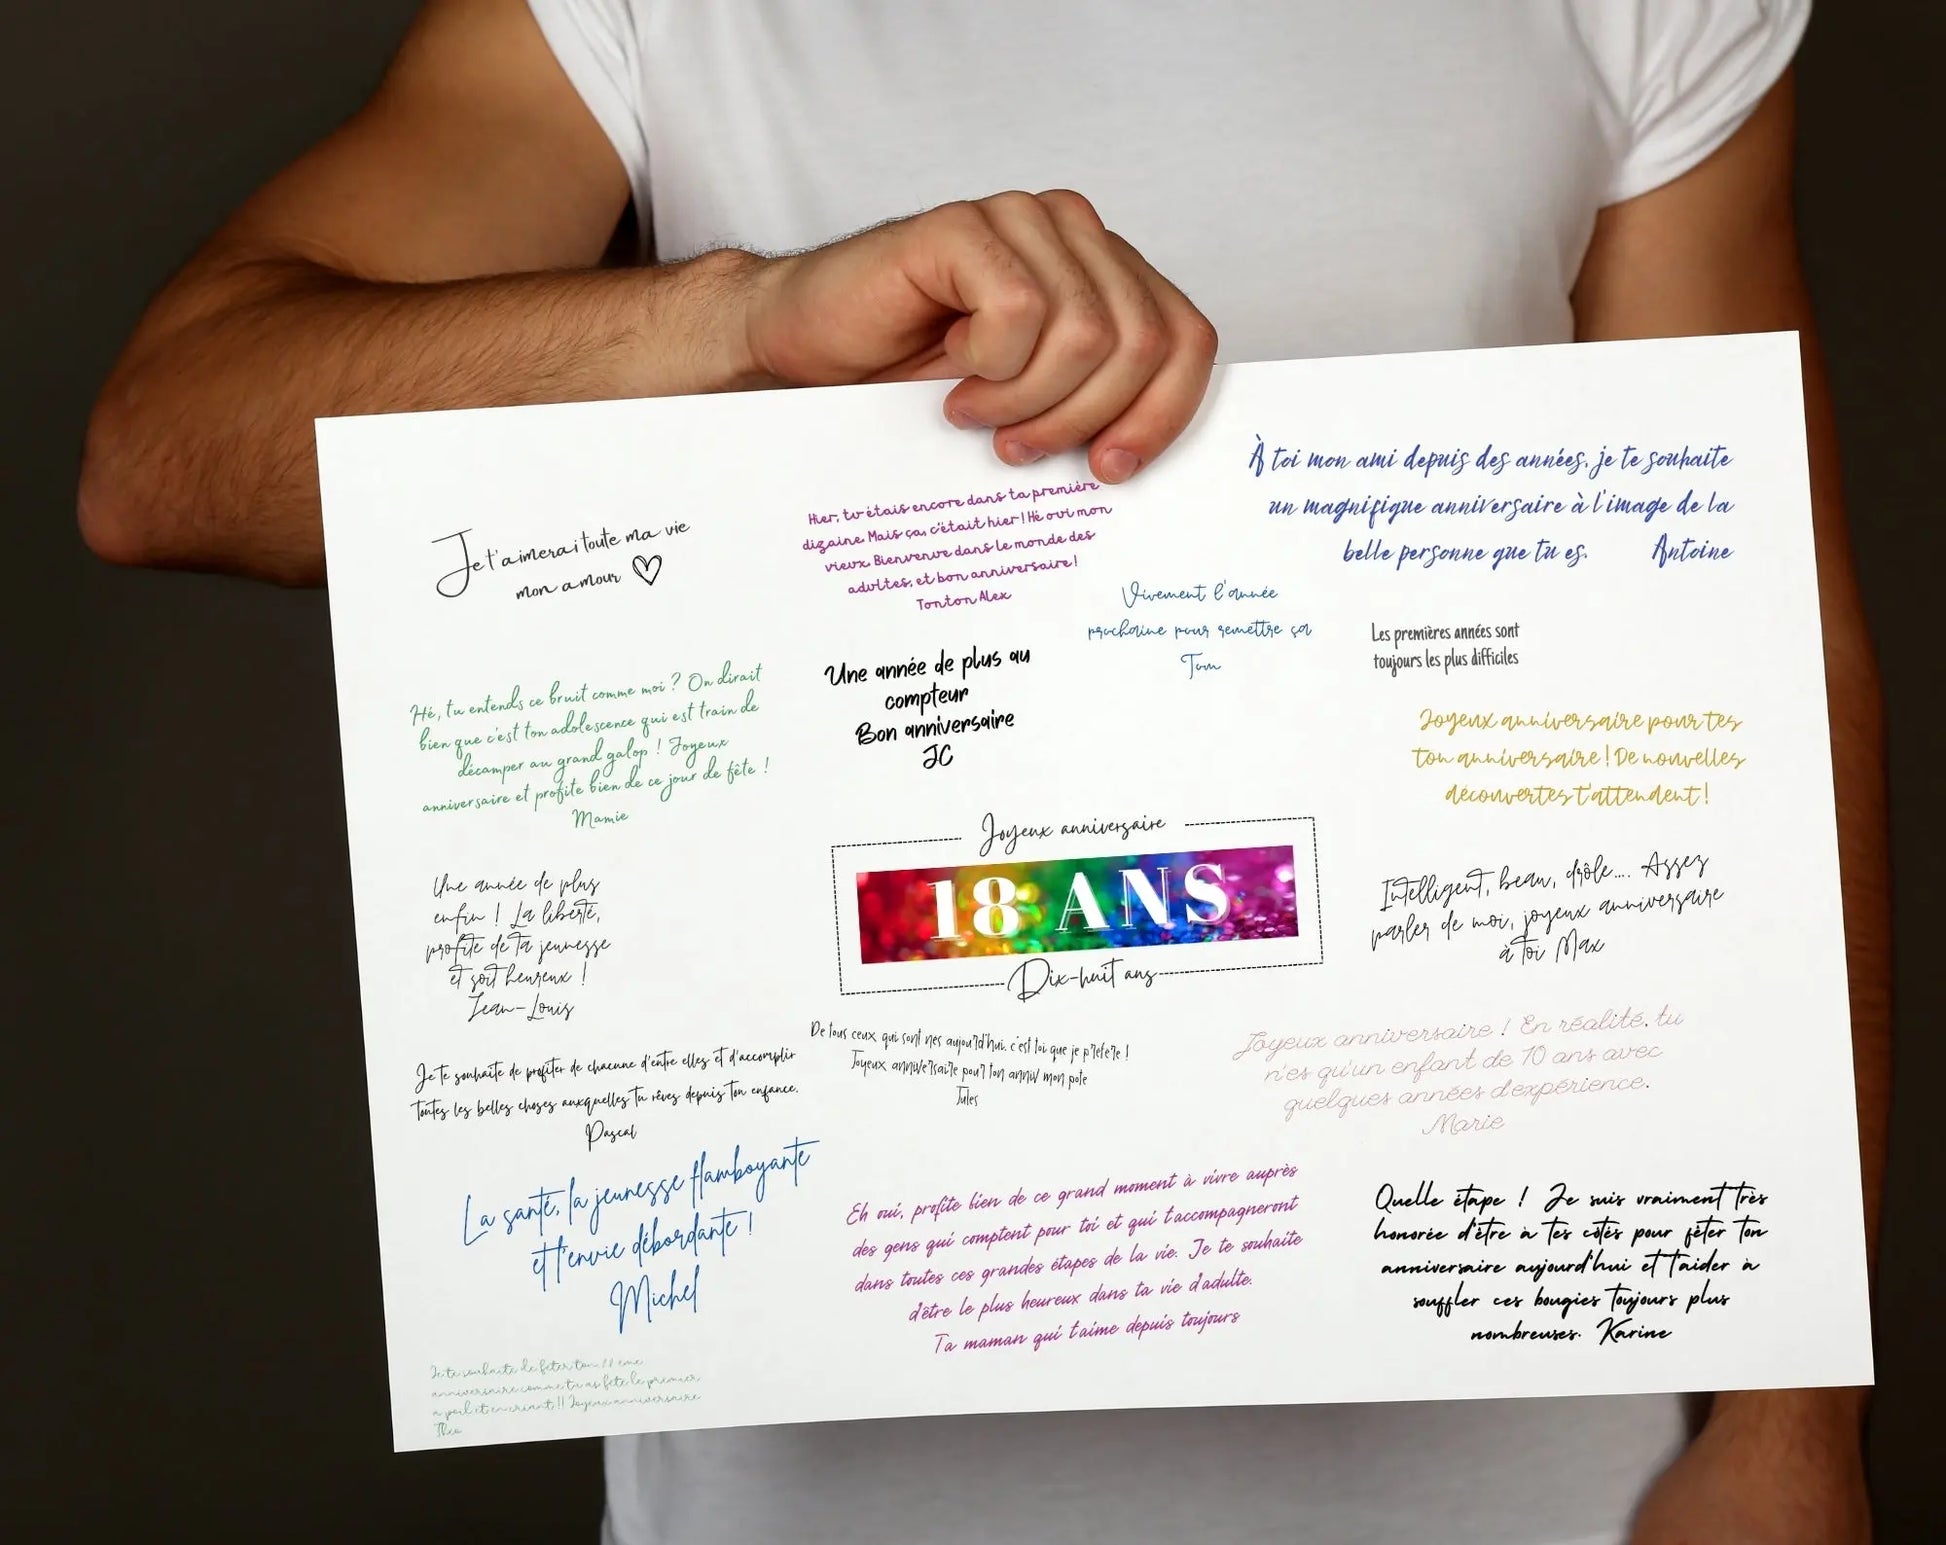 Je t'aimerai toute ma vie
mon amour
Hier, tu étais encore dans ta première
dizaine. Mais ça, c'était hier ! Hé oui mon
vieux. Bienvenue dans le monde des
adultes, et bon anniversaire !
Tonton Alex
À toi mon ami depuis des années, je te souhaite
un magnifique anniversaire à l'image de la
belle personne que tu es. Antoine
Vivement l'année
prochaine pour remettre ça
Tom
Les premières années sont
toujours les plus difficiles
Une année de plus au
compteur
Bon anniversaire
JC
Hé, tu entends ce bruit comme moi ? On dirait
bien que c'est ton adolescence qui est train de
décamper au grand galop ! Joyeux
anniversaire et profite bien de ce jour de fête !
Mamie
Joyeux anniversaire pour tes
ton anniversaire ! De nouvelles
découvertes t'attendent !
Joyeux anniversaire
18 ANS
Dix-huit ans
Une année de plus
enfin ! La liberté,
profite de ta jeunesse
et soit heureux !
Jean-Louis
Intelligent, beau, drôle.... Assez
parler de moi, joyeux anniversaire
à toi Max
De tous ceux qui sont nes aujourd'hui, c'est toi que je prefere !
Joyeux anniversaire pour ton anniv mon pote
Jules
Joyeux anniversaire ! En réalité, tu
n'es qu'un enfant de 10 ans avec
quelques années d'expérience.
Marie
Je te souhaite de profiter de chacune d'entre elles et d'accomplir
toutes les belles choses auxquelles tu rêves depuis ton enfance.
Pascal
La santé, la jeunesse flamboyante
et l'envie débordante !
Michel
Eh oui, profite bien de ce grand moment à vivre auprès
des gens qui comptent pour toi et qui t'accompagneront
dans toutes ces grandes étapes de la vie. Je te souhaite
d'être le plus heureux dans ta vie d'adulte.
Ta maman qui t'aime depuis toujours
Quelle étape ! Je suis vraiment très
honorée d'être à tes côtés pour fêter ton
anniversaire aujourd'hui et t'aider à
souffler ces bougies toujours plus
nombreuses. Karine
Je te souhaite de fêter ton eme
anniversaire comme tu as fêté le premier
a poil et en criant !! Joyeux anniversaire
Théa